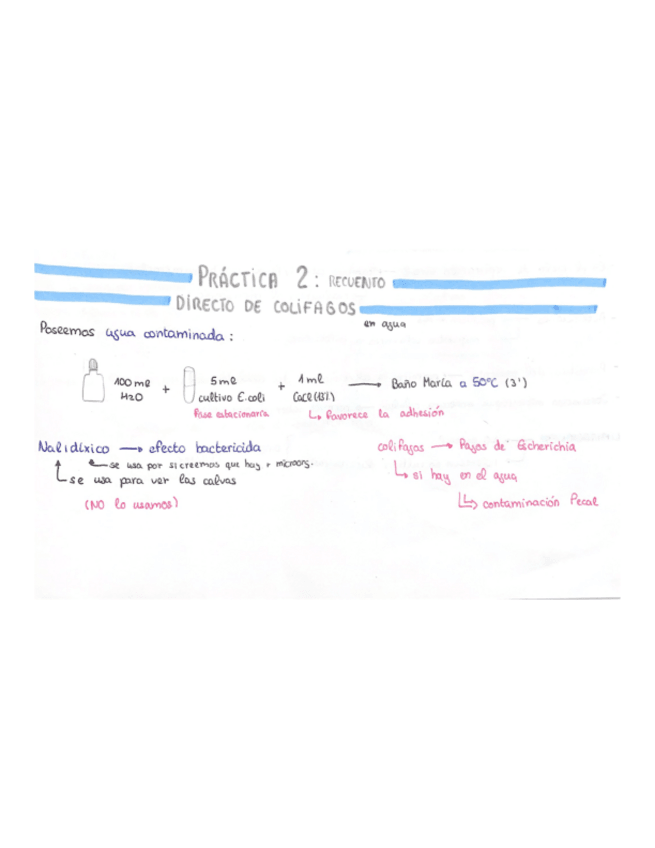 PRÁCTICA 2: RECUENTO
DIRECTO DE COLIFAGOS
en agua
Poseemos agua contaminada:
100 ml H2O + 5 ml cultivo E.coli + 1 ml → Baño María a 50ºC (3')
Fase estacionaria
↳ Favorece la adhesión
Nalidíxico → efecto bactericida
se usa por si creemos que hay + microorg.
se usa para ver las calvas
(NO lo usamos)
colifagos → Fagos de Escherichia
↳ si hay en el agua
↳ contaminación Fecal